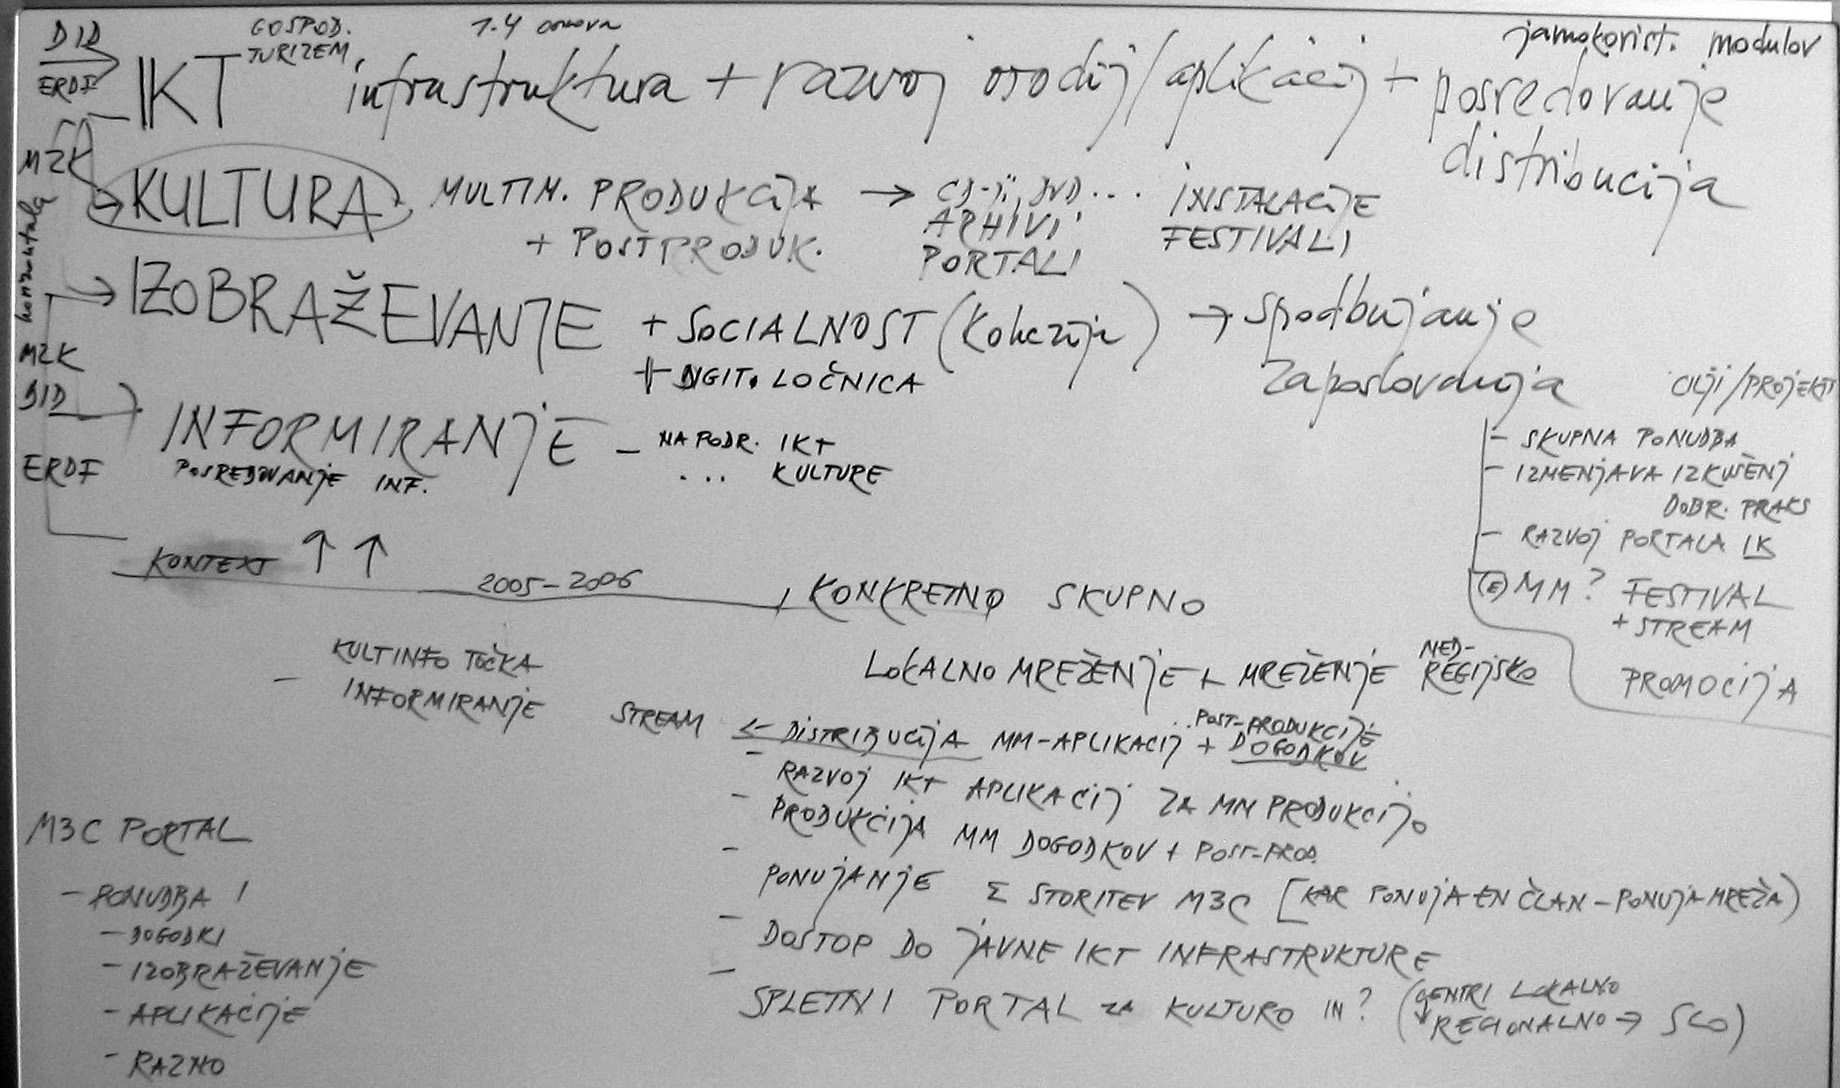 DID
ERDF
GOSPOD.
TURIZEM,
1.4 osnova
modulov
IKT infrastruktura + razvoj orodij/aplikacij + posredovanje
distribucija
MZK
horizontala
KULTURA MULTIM. PRODUKCIJA → CD-ji, DVD... INSTALACIJE
+ POSTPRODUK. ARHIVI FESTIVALI
PORTALI
IZOBRAŽEVANJE + SOCIALNOST (Kohezija) → spodbujanje
+ DIGIT. LOČNICA zaposlovanja
MZK
DID
ERDF
INFORMIRANJE – NA PODR. IKT
POSREDOVANJE INF. ... KULTURE
CILJI/PROJEKTI
- SKUPNA PONUDBA
- IZMENJAVA IZKUŠENJ
DOBR. PRAKS
- RAZVOJ PORTALA IK
(E) MM? FESTIVAL
+ STREAM
PROMOCIJA
KONTEXT ↑ ↑
2005-2006
KONKRETNO SKUPNO
KULTINFO TOČKA
- INFORMIRANJE
LOKALNO MREŽENJE + MREŽENJE MED-
REGIJSKO
STREAM ← DISTRIBUCIJA MM-APLIKACIJ + POST-PRODUKCIJE
DOGODKOV
- RAZVOJ IKT APLIKACIJ ZA MM PRODUKCIJO
- PRODUKCIJA MM DOGODKOV + POST-PROD.
- PONUJANJE Σ STORITEV M3C [KAR PONUJA EN ČLAN - PONUJA MREŽA)
- DOSTOP DO JAVNE IKT INFRASTRUKTURE
- SPLETNI PORTAL ZA KULTURO IN? (CENTRI LOKALNO
REGIONALNO → SLO)
M3C PORTAL
- PONUDBA !
- DOGODKI
- IZOBRAŽEVANJE
- APLIKACIJE
- RAZNO